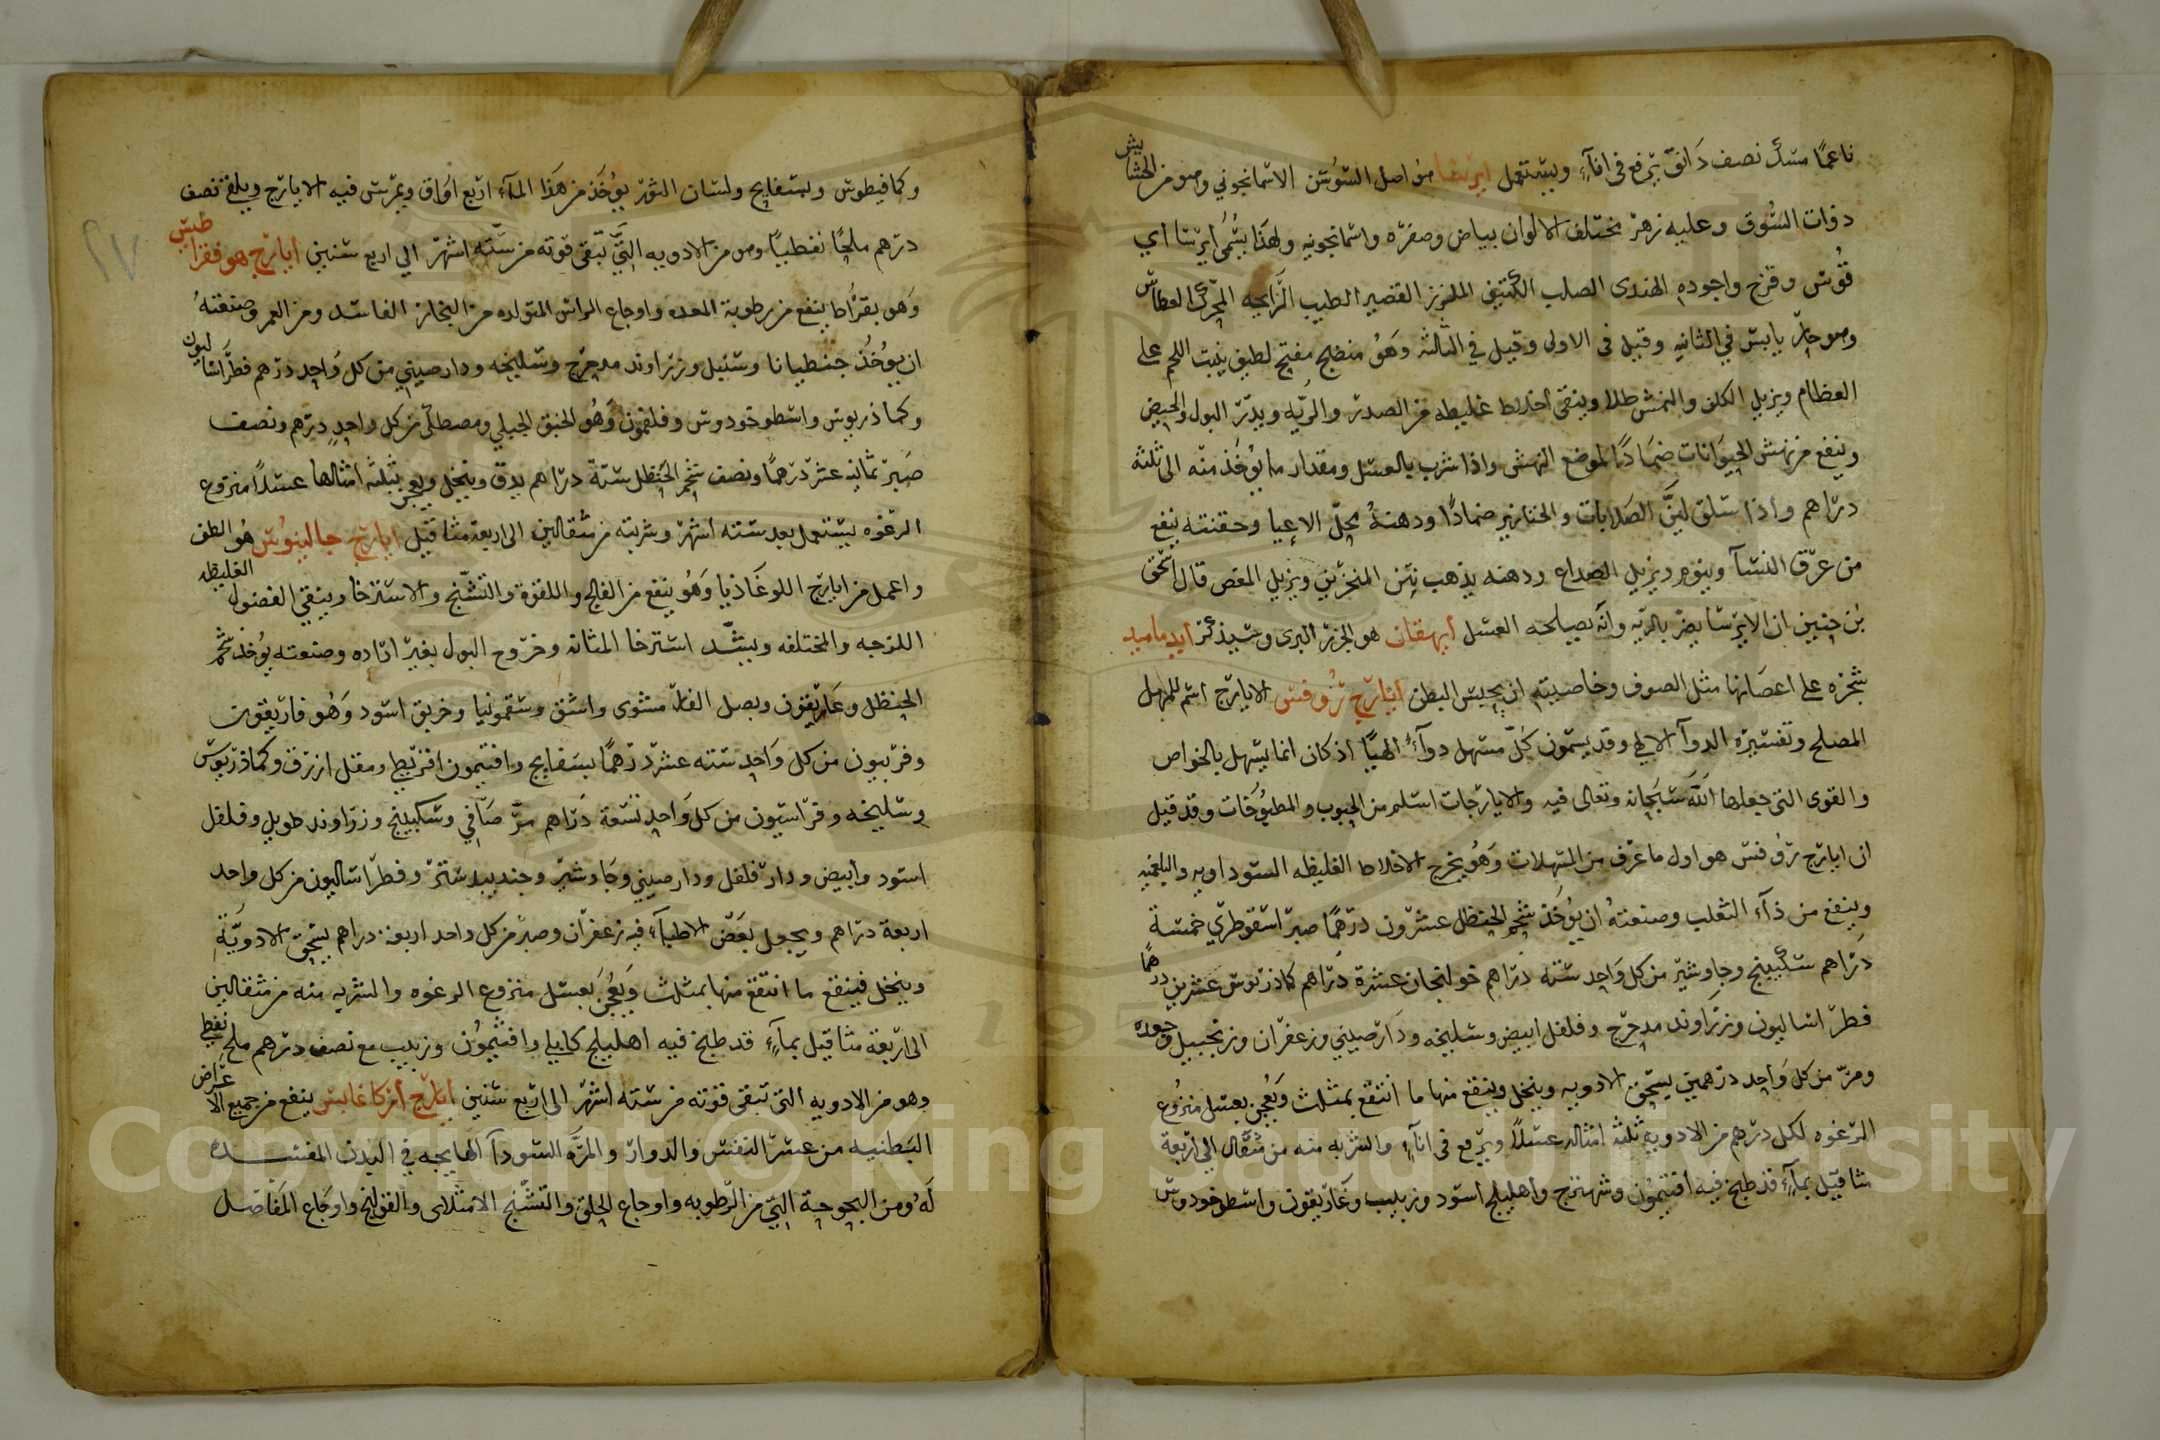 ناعمًا مسك نصف دانق يرفع في اناء ويستعمل ايرسا هو اصل السوسن الاسمانجوني وهو من الحشايش
ذوات السوق وعليه زهر مختلف الالوان بياض وصفره واسمانجونيه ولهذا يسمى ايرسا اي
قوس وقزح واجوده الهندى الصلب الكثيف الملزز القصير الطيب الرايحه المحرك العطاس
وهو حار يابس في الثانيه وقيل في الاولى وقيل في الثالثه وهو منضج مفتح لطيف ينبت اللحم على
العظام ويزيل الكلف والنمش طلا وينقى اخلاط غليظه من الصدر والريه ويدر البول والحيض
وينفع من نهش الحيوانات ضمادًا لموضع النهش واذا شرب بالعسل ومقدار ما يؤخذ منه الى ثلثه
دراهم واذا سلق لين الصلابات والخنازير ضمادًا ودهنه يحل الاعيا وحقنته ينفع
من عرق النسا وينوم ويزيل الصداع ودهنه يذهب نتن المنخرين ويزيل المغص قال اسحق
بن حنين ان الايرسا يضر بالريه وانه يصلحه العسل ايهقان هو الجزر البرى وسيذكر ايدماميد
شجره على اعصانها مثل الصوف وخاصيته ان يحبس البطن ايارج روفس الايارج اسم للمسهل
المصلح وتفسيره الدوا الالهي وقد يسمون كل مسهل دواء الهيًا اذ كان انما يسهل بالخواص
والقوى التى جعلها الله سبحانه وتعالى فيه والايارجات اسلم من الحبوب والمطبوخات وقد قيل
ان ايارج روفس هو اول ما عرف من المسهلات وهو يخرج الاخلاط الغليظه السوداويه والبلغميه
وينفع من داء الثعلب وصنعته ان يؤخذ شحم الحنظل عشرون درهمًا صبر اسقوطري خمسة
دراهم سكبينج وجاوشير من كل واحد سته دراهم خولنجان عشرة دراهم كماذريوس عشرين درهمًا
فطراساليون وزراوند مدحرج وفلفل ابيض وسليخه ودارصيني وزعفران وزنجبيل وجعده
ومر من كل واحد درهمين يسحق الادويه وينخل وينقع منها ما انتقع بمثلث ويعجن بعسل منزوع
الرغوه لكل درهم من الادويه ثلثه امثاله عسلًا ويرفع في اناء والشربه منه من مثقال الى اربعة
مثاقيل بماء قد طبخ فيه افتيمون وشهترج واهليلج اسود وزبيب وغاريقون واسطوخودوس
وكمافيطوس وبسفايج ولسان الثور يؤخذ من هذا الماء اربع اواق ويمرس فيه الايارج ويلقى نصف
درهم ملحًا نفطيًا وهو من الادويه التي تبقى قوته من سته اشهر الى اربع سنين ايارج هوفقراطيس
وهو بقراط ينفع من رطوبة المعده واوجاع الراس المتولده من البخار الفاسد ومن العمر وصنعته
ان يؤخذ جنطيانا وسنبل وزراوند مدحرج وسليخه ودارصيني من كل واحد درهم فطراساليون
وكماذريوس واسطوخودوس وفلفمون وهو الحبق الجبلي ومصطكى من كل واحد درهم ونصف
صبر ثمانيه عشر درهمًا ونصف شحم الحنظل ستة دراهم يدق وينخل ويعجن بثلثه امثالها عسلًا منزوع
الرغوه يستعمل بعد سته اشهر وشربته من مثقالين الى اربعه مثاقيل ايارج جالينوس هو الطف
واعمل من ايارج اللوغاذيا وهو ينفع من الفالج واللقوة والتشنج والاسترخا وينقي الفضول الغليظه
اللزجه والمختلفه ويشد استرخا المثانه وخروج البول بغير اراده وصنعته يؤخذ شحم
الحنظل وغاريقون وبصل الفار مشوى واشق وسقمونيا وخربق اسود وهو فاريقون
وفربيون من كل واحد سته عشر درهمًا بسفايج وافتيمون اقريطي ومقل ازرق وكماذريوس
وسليخه وفراسيون من كل واحد تسعة دراهم مر صافي وسكبينج وزراوند طويل وفلفل
اسود وابيض ودار فلفل ودارصيني وجاوشير وجندبيدستر وفطراساليون من كل واحد
اربعة دراهم ويجعل بعض الاطباء فيه زعفران وصبر من كل واحد اربعة دراهم يسحق الادوية
وينخل فينقع ما انتقع منها بمثلث ويعجن بعسل منزوع الرغوه والشربه منه من مثقالين
الى اربعة مثاقيل بماء قد طبخ فيه اهليلج كابلي وافتيمون وزبيب مع نصف درهم ملح نفطي
وهو من الادويه التى تبقى قوته من سته اشهر الى اربع سنين ايارج اركاغانيس ينفع من جميع الاعراض
البطنيه من عسر النفس والدوار والمره السودا الهايجه في البدن المفسده
له ومن البحوحة التي من الرطوبه واوجاع الحلق والتشنج الامتلاى والقولنج واوجاع المفاصل
٢٧
Copyright © King Saud University
1957